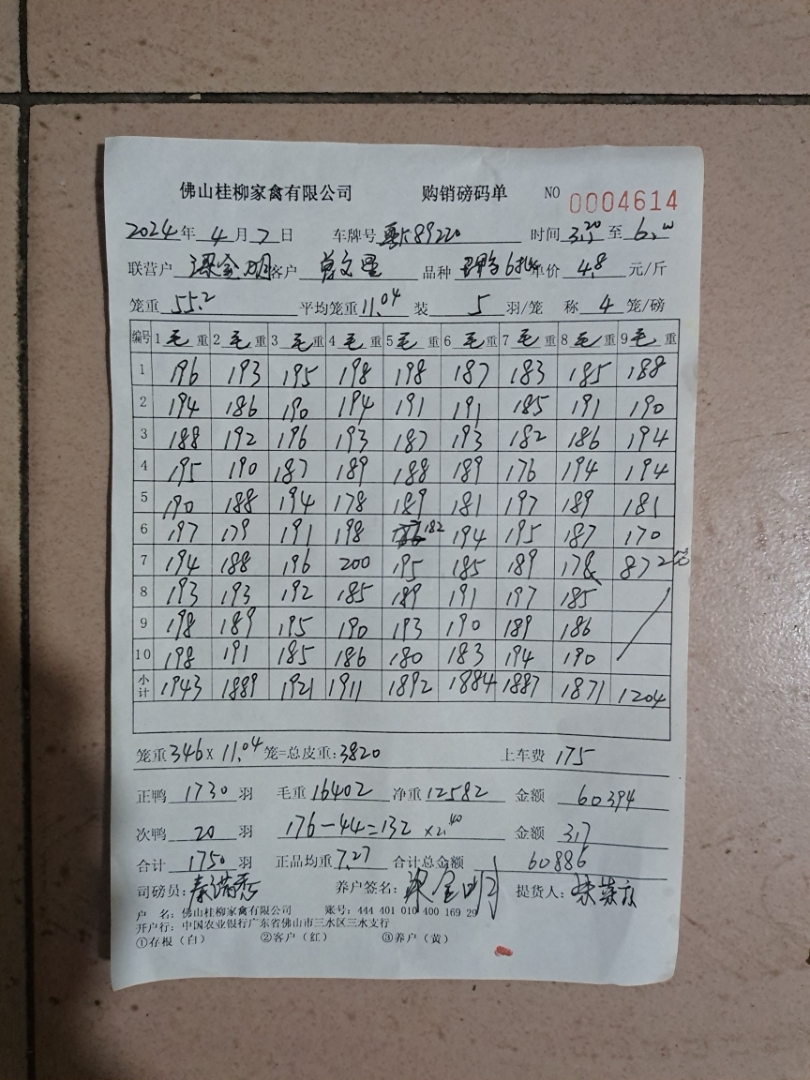 佛山桂柳家禽有限公司 购销磅码单 NO 0004614
2024年 4月7日 车牌号 89220 时间 3.20 至 6.00
联营户 梁金明 客户 曾文 品种 单价 4.8 元/斤
笼重 55.2 平均笼重 11.04 装 5 羽/笼 称 4 笼/磅
编号 1 毛 重 2 毛 重 3 毛 重 4 毛 重 5 毛 重 6 毛 重 7 毛 重 8 毛 重 9 毛 重
1 196 193 195 198 198 187 183 185 188
2 194 186 190 194 191 191 185 191 190
3 188 192 196 193 187 193 182 186 194
4 195 190 187 189 188 189 176 194 194
5 190 188 194 178 189 181 197 189 181
6 197 179 191 198 182 194 195 187 170
7 194 188 196 200 195 185 189 178 87
8 193 193 192 185 189 191 197 185
9 198 189 195 190 193 190 189 186
10 198 191 185 186 180 183 194 190
小计 1943 1889 1921 1911 1892 1884 1887 1871 1204
笼重 346 × 11.04 笼=总皮重: 3820 上车费 175
正鸭 1730 羽 毛重 16402 净重 12582 金额 60394
次鸭 20 羽 176-44=132 ×2.40 金额 317
合计 1750 羽 正品均重 7.27 合计总金额 60886
司磅员: 秦满秀 养户签名: 梁金明 提货人:
户 名: 佛山桂柳家禽有限公司 账号: 444 401 010 400 169 29
开户行: 中国农业银行广东省佛山市三水区三水支行
①存根(白) ②客户(红) ③养户(黄)